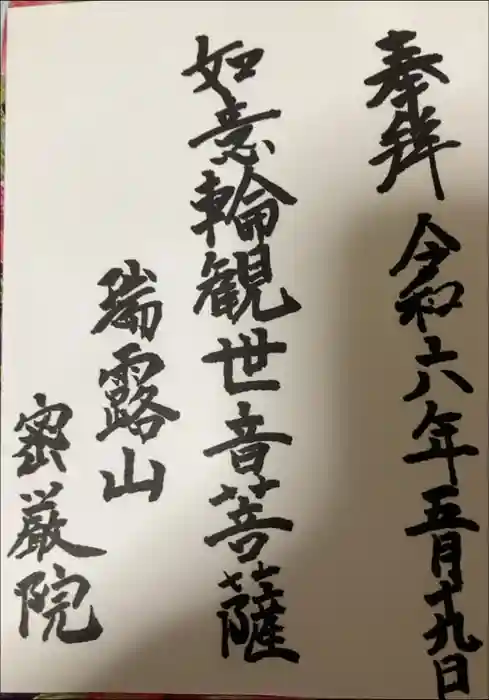 奉拝 令和六年五月十九日
如意輪観世音菩薩
瑞露山
密厳院